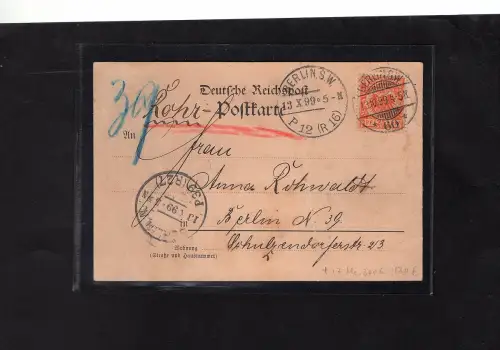 39
Deutsche Reichspost
Rohr-Postkarte
BERLIN, S.W.
13 X 99 5-
P 12 (R 16)
60
An
Frau
Anna Rohwaldt
Berlin N. 39
Schulzendorferstr. 23
P 39 (R 27)
Wohnung
(Straße und Hausnummer)